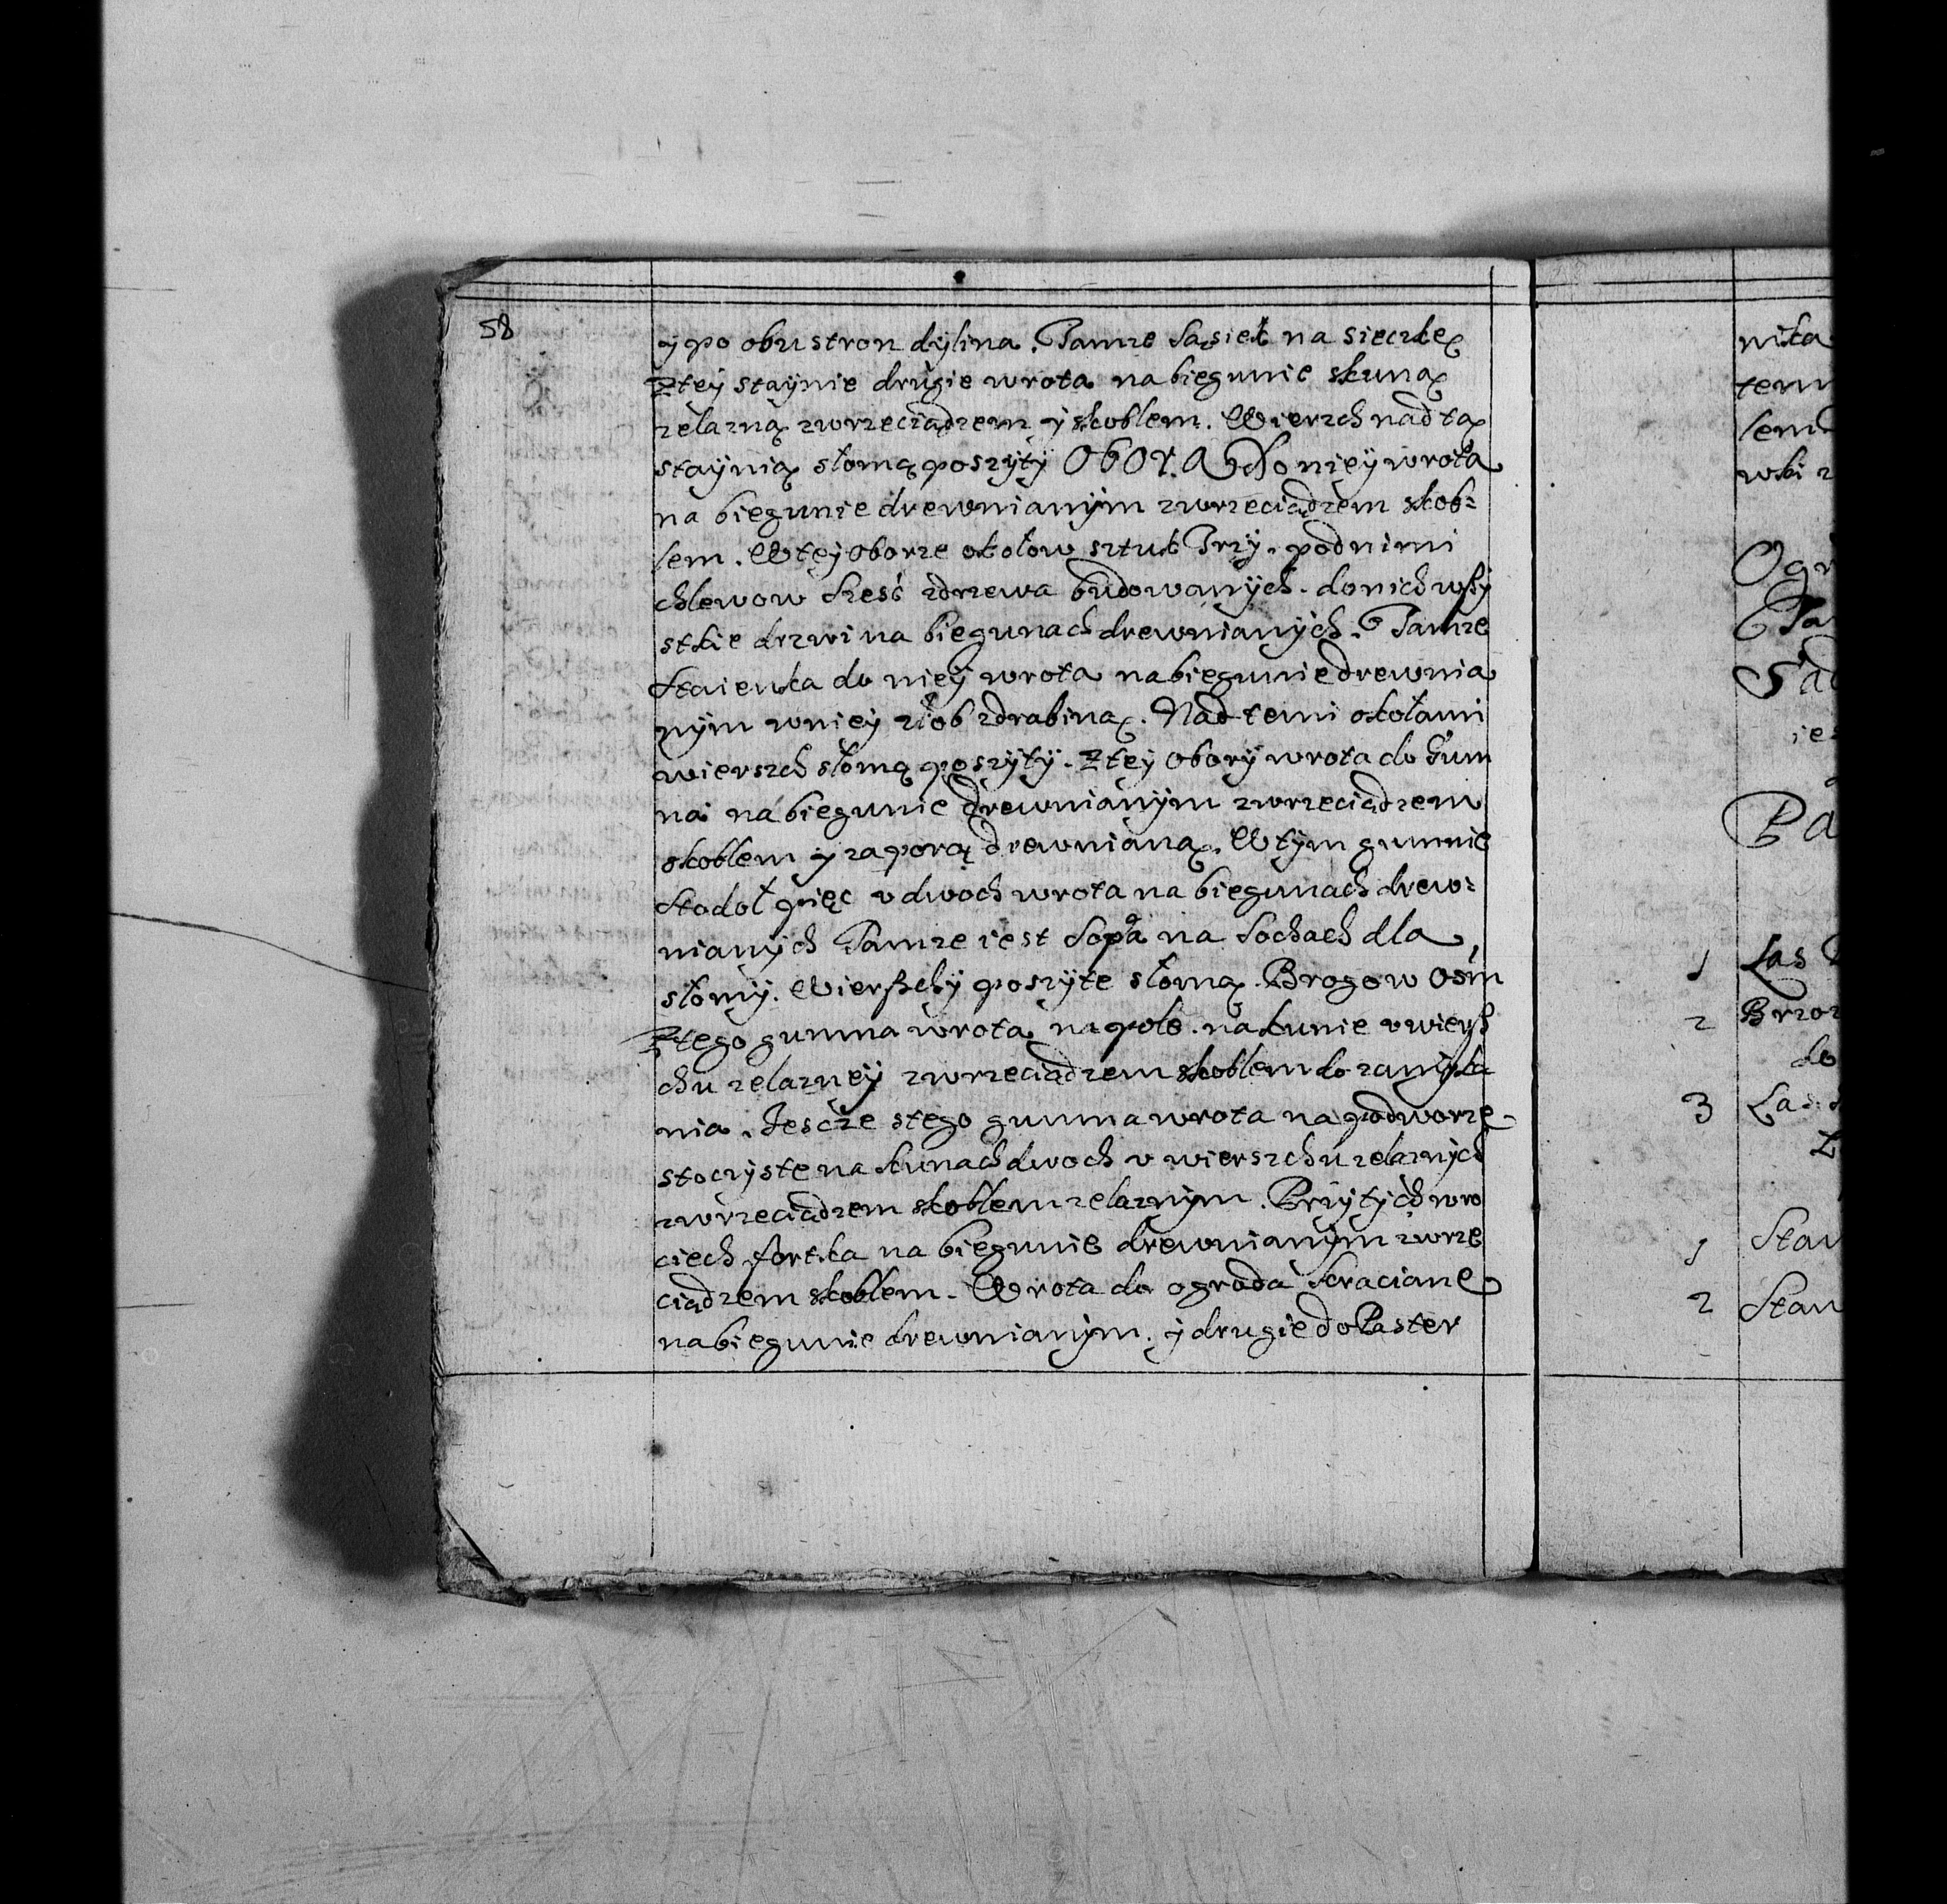 58
y po obu stron dylina. Tamze sąsiek na sieczkę
Z tey staynie drugie wrota na biegunie skuną
zelazną zwrzeciądzem y skoblem. Wierzch nad tą
staynią słomą poszyty ObORA Do niey wrota
na biegunie drewnianym zwrzeciądzem skob:
lem. W tey oborze okołow sztuk Trzy. pod nimi
chlewow sześć zdrzewa budowanych. do nich wszy
stkie drzwi na biegunach drewnianych. Tamze
staienka do niey wrota na biegunie drewnia
nym wniey złob zdrabiną. Nad temi okołami
wierszch słomą poszyty. Z tey obory wrota do Gum
na na biegunie drewnianym zwrzeciądzem
skoblem y zaporą drewnianą. W tym gumnie
stodoł pięc v dwoch wrota na biegunach drew:
nianych Tamze iest sopa na sochach dla
słomy. Wierßchy poszyte słomą. Brogow osm
Z tego gumna wrota na pole. na kunie v wierz
chu zelazney zwrzeciądzem skoblem do zamyka
nia. Jescze stego gumna wrota na podworze
stoczyste na kunach dwoch v wierszchu zelaznych
zwrzeciądzem skoblem zelaznym. Przytych wro
ciech fortka na biegunie drewnianym zwrze
ciądzem skoblem. Wrota do ogroda kraciane
na biegunie drewnianym. y drugie do Paster
nika
tem
lem
wki z
Ogr
Ta
Sad
ies
Pa
1 Las
2 Brzoz
do
3 Las
1 Staw
2 Staw